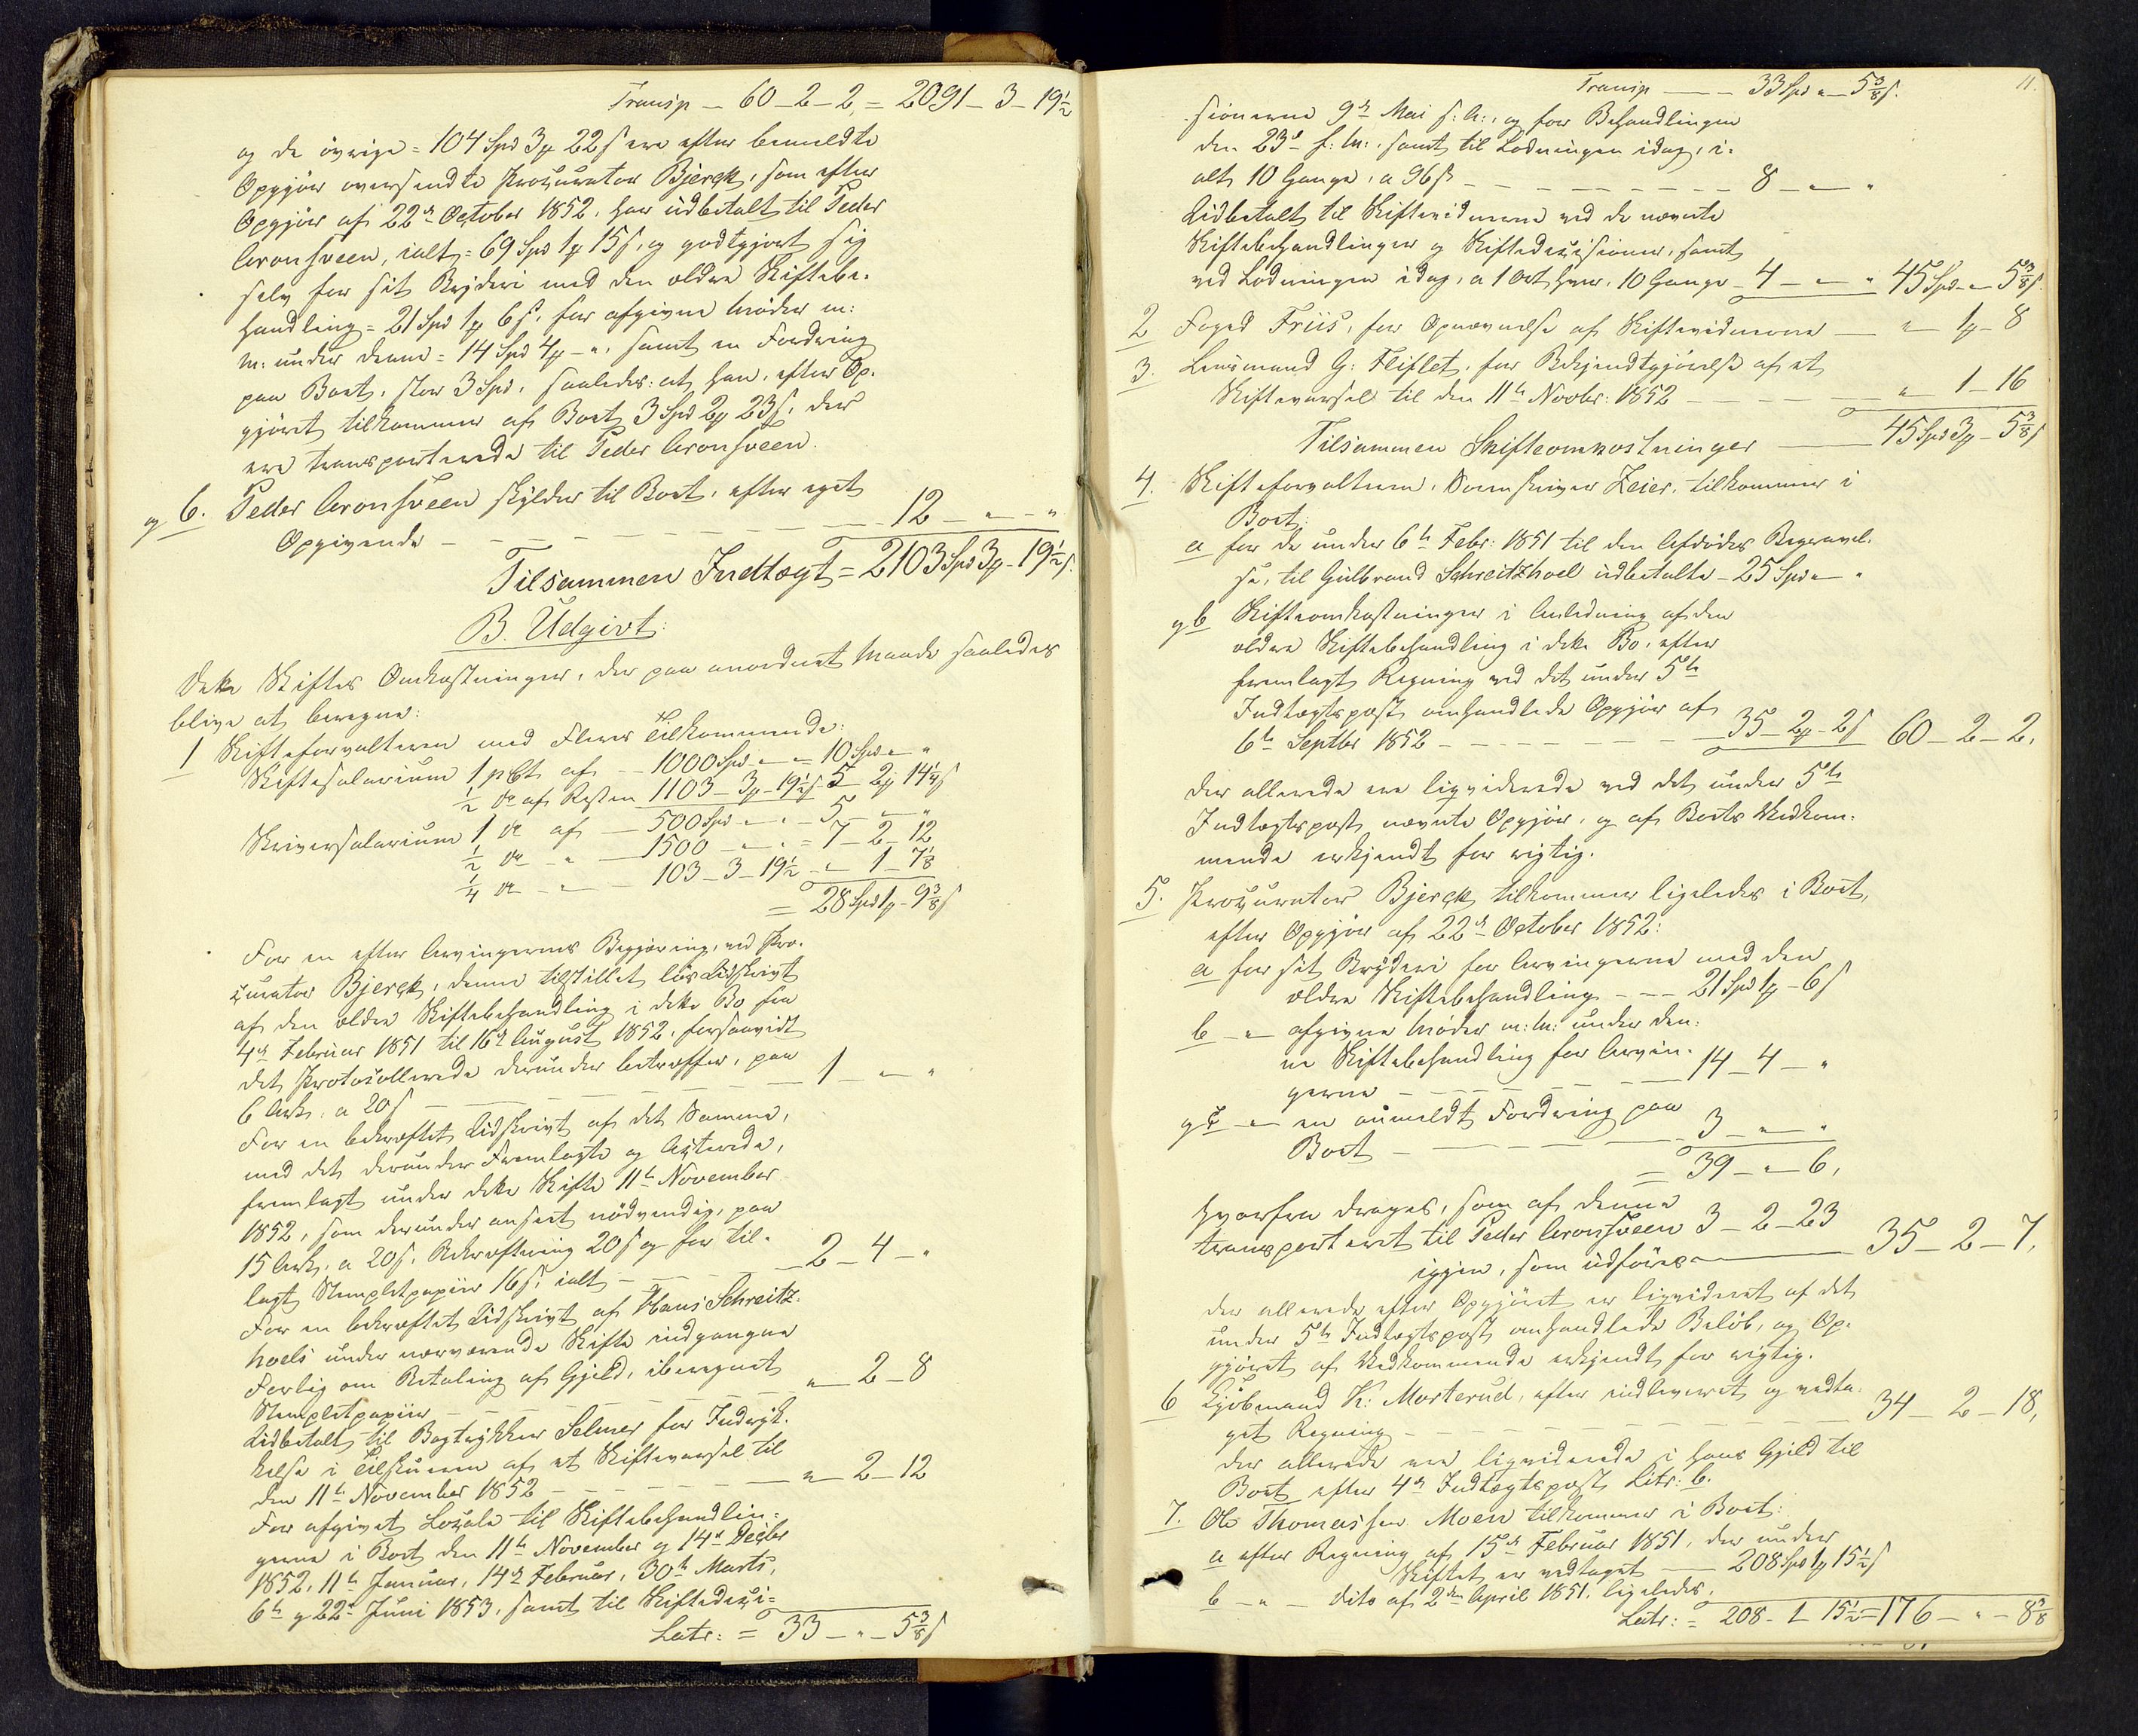 Transp — 60 – 2 – 2, = 2091 – 3 – 19½
og de övrige = 104 Spd 3 ₰ 22 s ere efter bemeldte
Opgjør oversendte Prokurator Bjerck, som efter
Opgjör af 22de October 1852, har udbetalt til Peder
Aronsveen, ialt = 69 Spd 1 ₰ 15 s, og godtgjort sig
selv for sit Bryderi med den ældre Skiftebe-
handling = 21 Spd 1 ₰ 6 s, for afgivne Møder m:
m: under denne = 14 Spd 4 ₰ – „, samt en Fordring
paa Boet, stor 3 Spd, saaledes: at han, efter Op-
gjöret tilkommer af Boet 3 Spd 2 ₰ 23 s, der
ere transporterede til Peder Aronsveen.
og 6. Peder Aronsveen skylder til Boet, efter eget
Opgivende – – – – – – 12 – „ – „
Tilsammen Indtægt = 2103 Spd 3 ₰ – 19½ s.
B. Udgivt:
Dette Skiftes Omkostninger, der paa anordnet Maade saaledes
blive at beregne:
1 Skifteforvalteren med Flere Tilkommende:
Skiftesalarium 1 pCt af – 1000 Spd – „ – = 10 Spd – „ „
½ do af Resten 1103 – 3 ₰ – 19½ s – 5 – 2 ₰ 14¼ s
Skriversalarium 1 do af – 500 Spd – „ – 5 – „ – „
½ do – „ – 1500 – „ – „ = 7 – 2 – 12
¼ do – „ – 103 – 3 – 19½ – „ – 1 – 7⅛
= 28 Spd 1 ₰ – 9⅜ s
For en efter Arvingernes Begjæring, ved Pro-
curator Bjerck, denne tilstillet løs Udskrivt
af den ældre Skiftebehandling i dette Bo fra
4de Februar 1851 til 16de August 1852, forsaavidt
det Protocollerede derunder betræffer, paa
6 Ark, a 20 s – – – – – – 1 – „ – „
For en bekræftet Udskrivt af det Samme,
med det derunder Fremlagte og Acterede,
fremlagt under dette Skifte 11te November
1852, som derunder anseet nödvendig, paa
15 Ark, a 20 s, Bekræftning 20 s og for til-
lagt Stempletpapiir 16 s, ialt – – – – 2 – 4 – „
For en bekræftet Udskrivt af Hans Schreitz-
hoels under nærværende Skifte indgangne
Forlig om Betaling af Gjeld, iberegnet
Stempletpapiir – – – – – – „ – 2 – 8
Udbetalt til Bogtrykker Selmer for Indryk-
kelse i Tilskueren af et Skiftevarsel til
den 11te November 1852 – – – – – „ – 2 – 12
For afgivet Locale til Skiftebehandlin-
gerne i Boet den 11te November og 14de Decbr
1852, 11te Januar, 14de Februar, 30te Marts,
6te og 22de Juni 1853, samt til Skiftedeci-
Latr: = 33 – „ – 5⅜ s
11.
Transp – – – 33 Spd „ – 5⅜ s.
sionerne 9de Mai s: A:, og for Behandlingen
den 23de f: M:, samt til Lodningen idag, i-
alt 10 Gange, a 96 s – – – – – – – 8 – „ – „
Udbetalt til Skiftevidnerne ved de nævnte
Skiftebehandlinger og Skiftedecisioner, samt
ved Lodningen idag, a 1 Ort hver, 10 Gange – 4 – „ – „ 45 Spd – „ – 5⅜ s.
2 Foged Friis, for Opnævnelse af Skiftevidnerne – „ – 1 ₰ – 8
3. Lensmand G: Fliflet, for Bekjendtgjörelse af et
Skiftevarsel til den 11te Novbr: 1852 – – – – – „ 1 – 16
Tilsammen Skifteomkostninger – 45 Spd 3 ₰ – 5⅜ s
4. Skifteforvalteren, Sorenskriver Zeier, tilkommer i
Boet:
a for de under 6te Febr: 1851 til den Afdödes Begravel-
se, til Gulbrand Schreitzhoel udbetalte – 25 Spd „ – „
og b Skifteomkostninger i Anledning af den
ældre Skiftebehandling i dette Bo, efter
fremlagt Regning ved det under 5te
Indtægtspost omhandlede Opgjör af
6te Septbr 1852 – – – – – – 35 – 2 ₰ – 2 s 60 – 2 – 2,
der allerede ere liqviderede ved det under 5te
Indtægtspost nævnte Opgjör, og af Boets Vedkom-
mende erkjendt for rigtig.
5. Procurator Bjerck tilkommer ligeledes i Boet,
efter Opgjör af 22de October 1852:
a for sit Bryderi for Arvingerne med den
ældre Skiftebehandling – – – 21 Spd 1 ₰ – 6 s
b – „ – afgivne Møder m: M: under den-
ne Skiftebehandling for Arvin-
gerne – – – – – – 14 – 4 – „
og c – „ – en anmeldt Fordring paa
Boet – – – – – – 3 – „ – „
= 39 – „ – 6,
hvorfra drages, som af denne
transporteret til Peder Aronsveen 3 – 2 – 23
igjen, som udföres – 35 – 2 – 7,
der allerede efter Opgjöret er liqvideret af det
under 5te Indtægtspost omhandlede Belöb, og Op-
gjöret af Vedkommende erkjendt for rigtig.
6 Kjöbmand K: Morterud, efter indleveret og vedta-
get Regning – – – – – – – – 34 – 2 – 18,
der allerede ere liqviderede i hans Gjeld til
Boet efter 4de Indtægtspost Litr: b.
7. Ole Thomassen Moen tilkommer i Boet:
a efter Regning af 15de Februar 1851, der under
Skiftet er vedtaget – 208 Spd 1 ₰ 15½ s
b – „ – dito af 2den April 1851, ligeledes.
Latr: = 208 – 1 – 15½ = 176 – „ – 8⅜